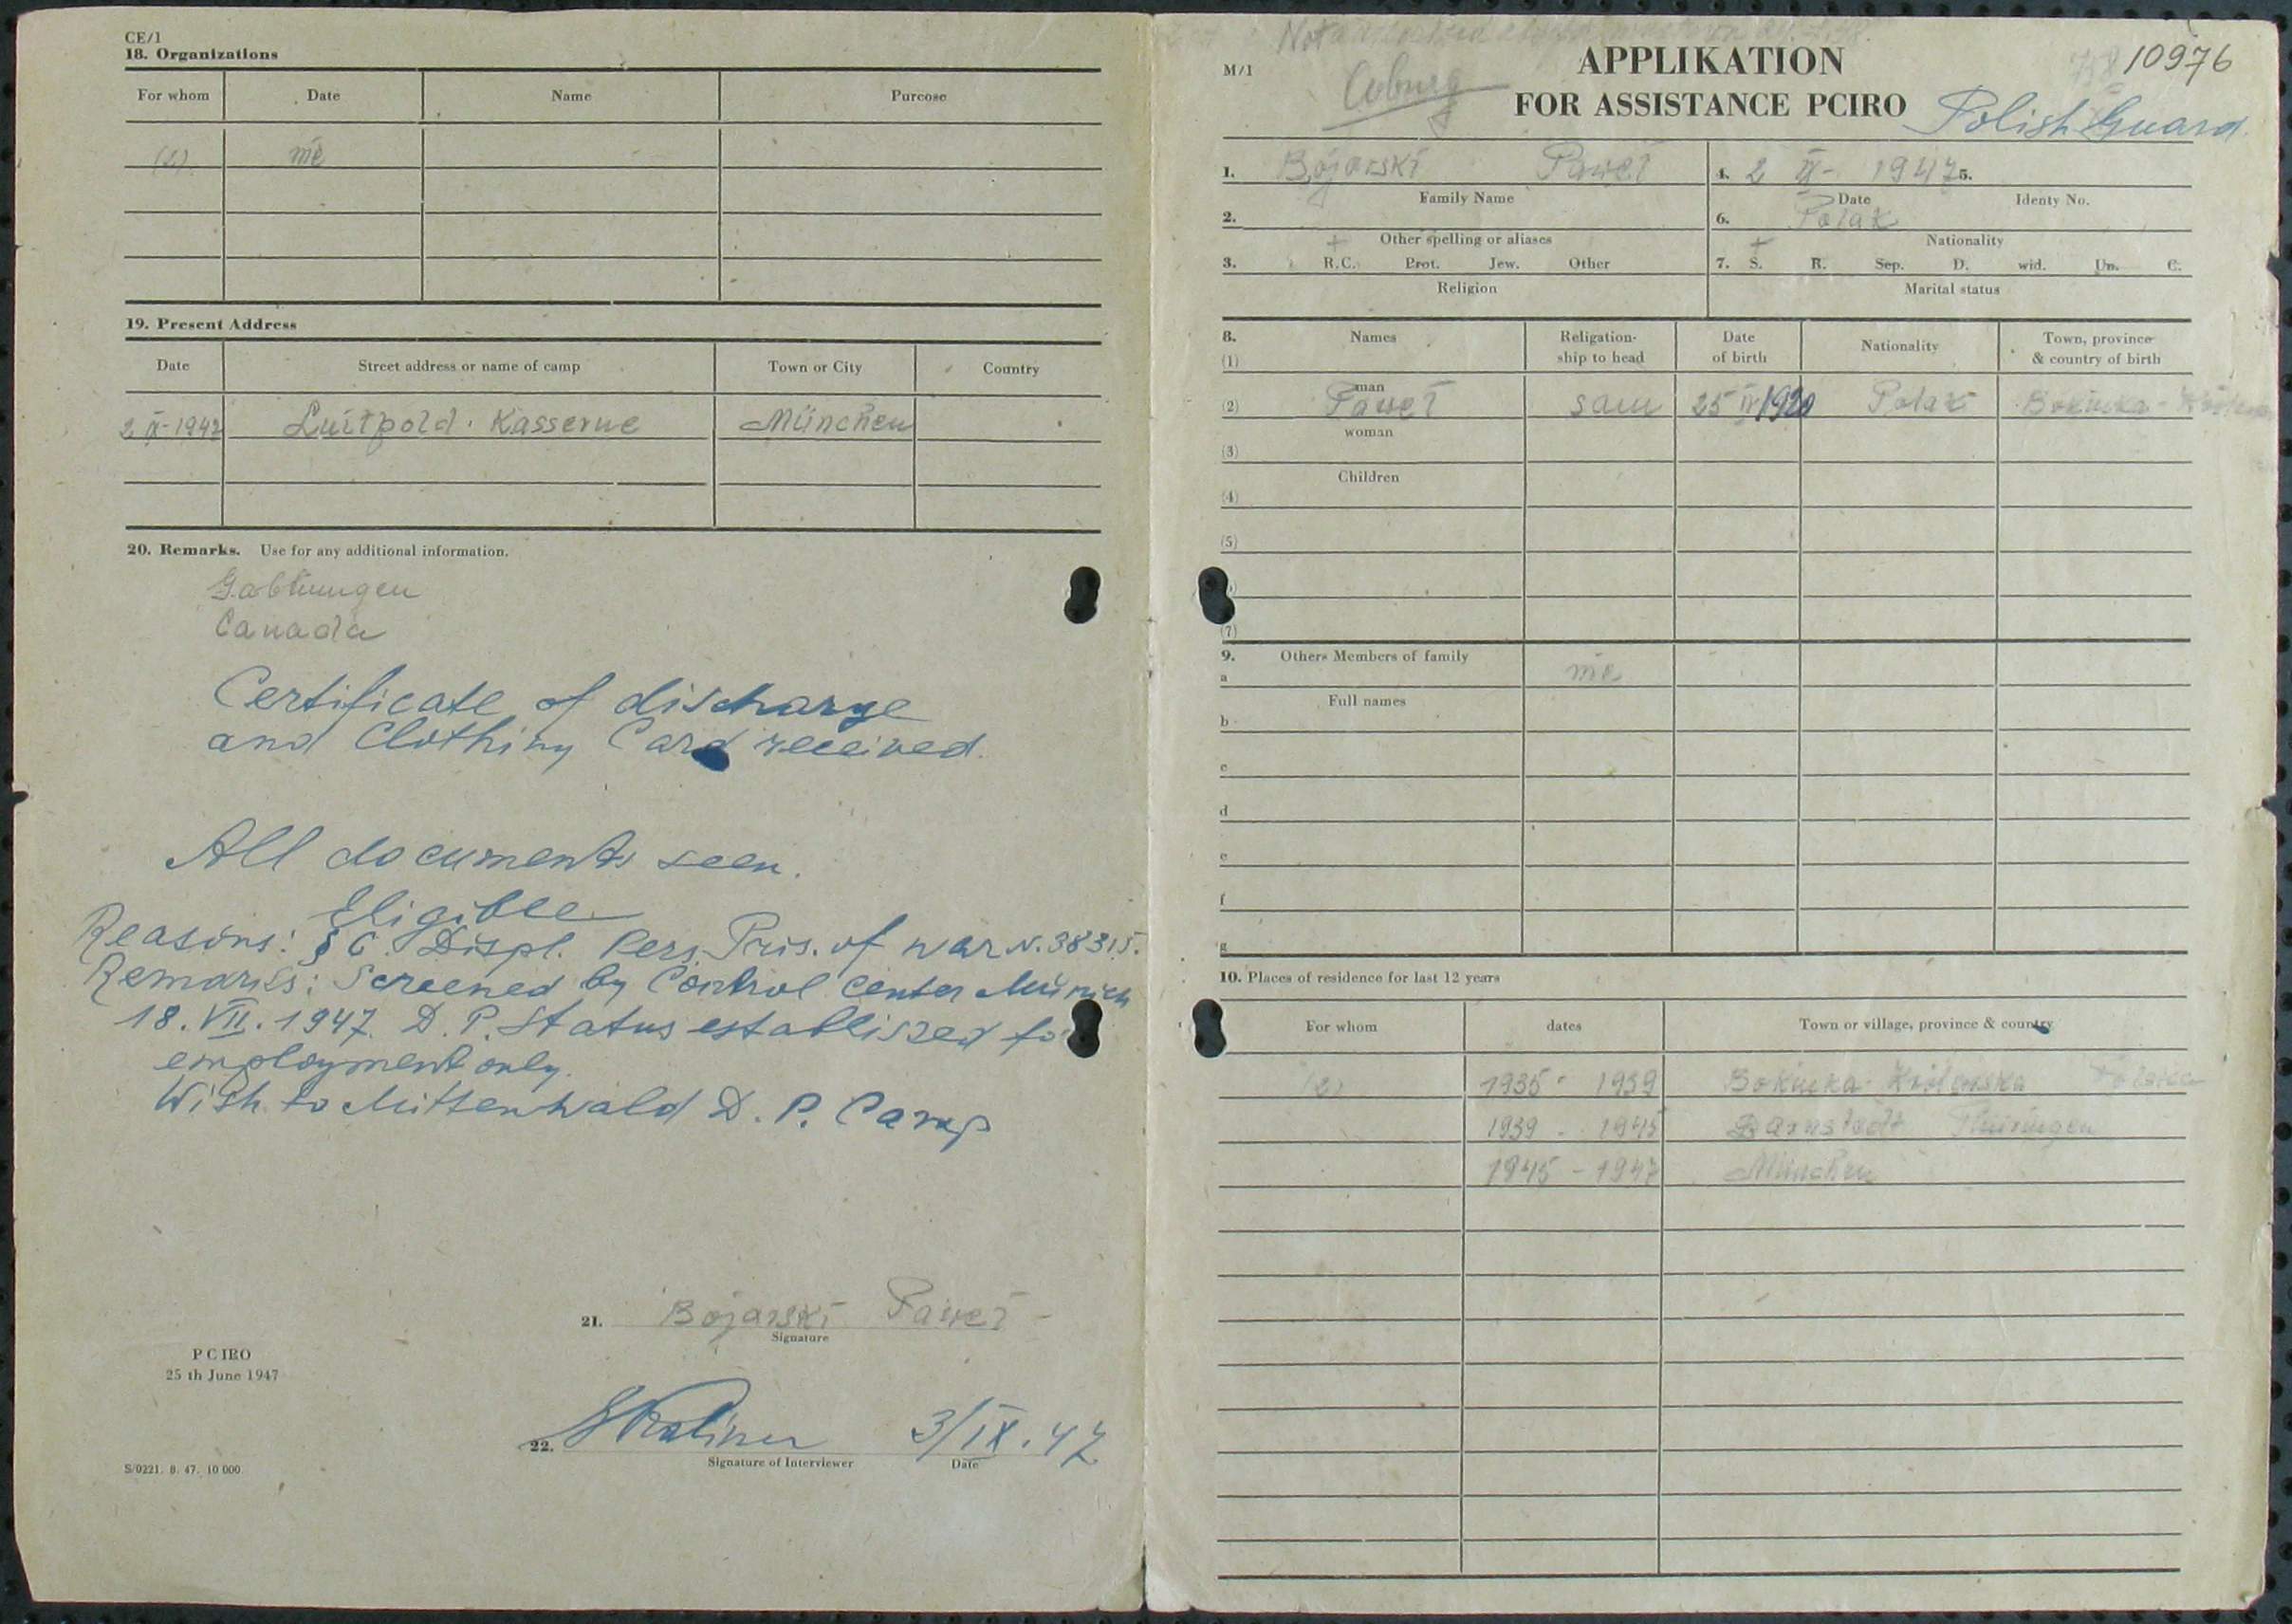 CE/1
18. Organizations
For whom Date Name Purcose
(2) nie
19. Present Address
Date Street address or name of camp Town or City Country
2 IX-1947 Luitpold · Kasserne München
20. Remarks. Use for any additional information.
Canada
Certificate of discharge
and Clothing Card received.
All documents seen.
Eligible
Reasons: § C. Displ. Pers. Pris. of war N. 38315.
Remarks: Screened by Control Center Munich
18. VII. 1947. D. P. Status established fo
employment only.
Wish to Mittenwald D. P. Camp
21. Bojarski Paweł
Signature
PC IRO
25 th June 1947
22. 3/IX.47
Signature of Interviewer Date
S/0221. 8. 47. 10 000
M/1
Coburg
APPLIKATION
10976
FOR ASSISTANCE PCIRO
Polish Guard
1. Bojarski Paweł 4. 2 IX- 1947 5.
Family Name Date Identy No.
2. 6. Polak
Other spelling or aliases Nationality
+ +
3. R.C. Prot. Jew. Other 7. S. R. Sep. D. wid. Un. C.
Religion Marital status
8. Names Religation- Date Nationality Town, province
(1) ship to head of birth & country of birth
man
(2) Paweł sam 25 IV 1920 Polak Bokinka -
woman
(3)
Children
(4)
(5)
(7)
9. Others Members of family nie
a
Full names
b
c
d
e
f
g
10. Places of residence for last 12 years
For whom dates Town or village, province & country
(2) 1935 - 1939 Bokinka Królewska Polska
1939 - 1945 Thüringen
1945 - 1947 München